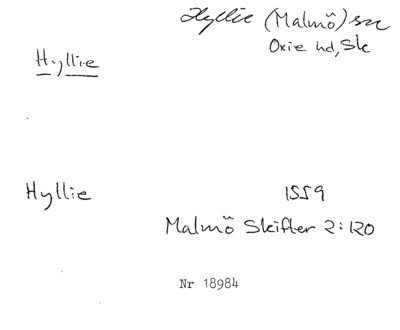 Hyllie (Malmö) sn
Oxie hd, Sk
Hyllie
Hyllie 1559
Malmö Skifter 2:120
Nr 18984